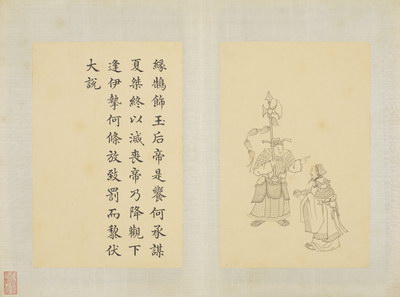 緣鵠飾玉后帝是饗何承謀
夏桀終以滅喪帝乃降觀下
逢伊摯何條放致罰而黎伏
大說